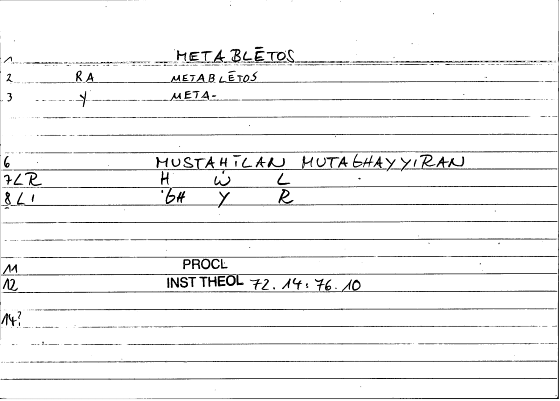 1 METABLĒTOS
2 RA METABLĒTOS
3 Y META-
6 MUSTAHĪLAN MUTAGHAYYIRAN
7 LR H W L
8 L1 'GH Y R
11 PROCL
12 INST THEOL 72.14:76.10
14?